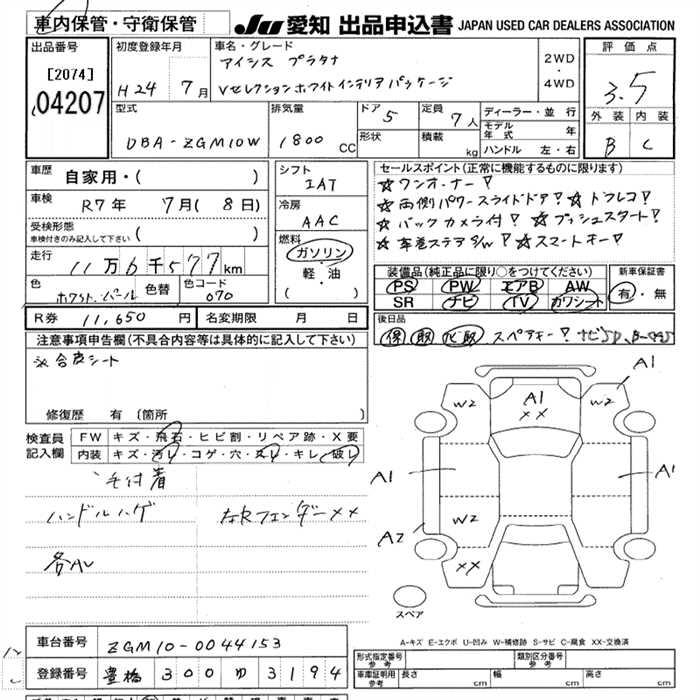 車内保管・守衛保管
JU 愛知 出品申込書 JAPAN USED CAR DEALERS ASSOCIATION
出品番号
[2074]
04207
初度登録年月
H24年 7月
車名・グレード
アイシス プラタナ
Vセレクションホワイトインテリアパッケージ
2WD
・
4WD
評価点
3.5
外装 内装
B C
型式
DBA-ZGM10W
排気量
1800 CC
ドア 5
形状
定員 7人
積載 kg
ディーラー・並行
モデル年式 年
ハンドル 左・右
車歴 自家用・( )
車検 R7年 7月( 8日)
受検形態
車検付きのみ記入して下さい ( )
走行 11万6千577km
色 ホワイトパール 色替 色コード 070
シフト
IAT
冷房
AAC
燃料
ガソリン
・
軽・油
( )
セールスポイント(正常に機能するものに限ります)
☆ワンオーナー!
☆両側パワースライドドア! ☆ドラレコ!
☆バックカメラ付! ☆プッシュスタート!
☆本革ステアSW! ☆スマートキー!
装備品(純正品に限り○をつけてください)
PS PW エアB AW
SR ナビ TV カワシート
新車保証書
有・無
R券 11,650 円 名変期限 月 日
後日品
保 取 ナビ取 スペアキー!
注意事項申告欄(不具合内容等は具体的に記入して下さい)
※合皮シート
修復歴 有 〔箇所 〕
検査員記入欄
FW キズ・飛石・ヒビ割・リペア跡・X要
内装 キズ・汚レ・コゲ・穴・スレ・キレ・破レ
毛付着
ハンドルハゲ
左右Rフェンダーxx
A1
W2 A1 W2
xx
A1 A1
W2
A2
xx
スペア
A-キズ E-エクボ U-凹み W-補修跡 S-サビ C-腐食 XX-交換済
車台番号 ZGM10-0044153
登録番号 豊橋 300 ゆ 3194
形式指定番号
参考
類別区分番号
参考
車庫証明用
参考
長さ cm 幅 cm 高さ cm